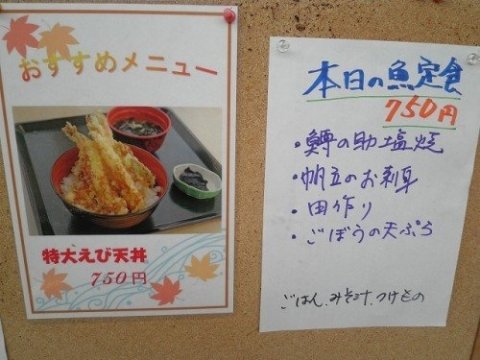 おすすめメニュー
特大えび天丼
750円
本日の魚定食
750円
・鱒の助塩焼
・帆立のお刺身
・田作り
・ごぼうの天ぷら
ごはん、みそ汁、つけもの